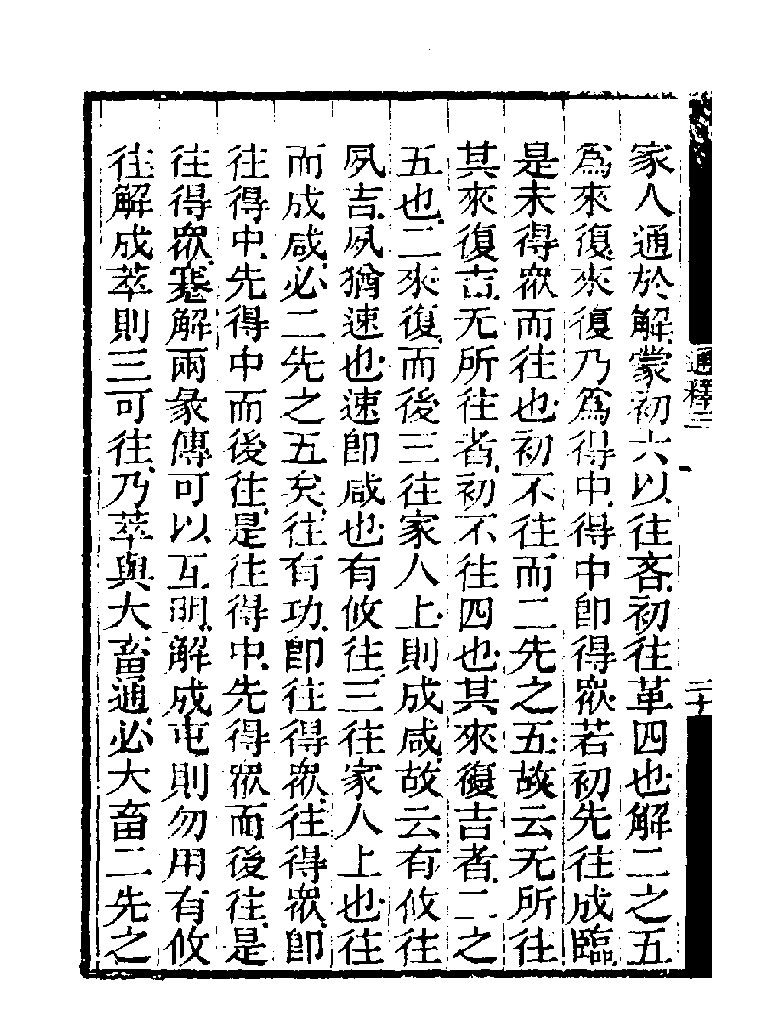 家人通於解蒙初六以往吝初往革四也解二之五
爲來復來復乃爲得中得中即得衆若初先往成臨
是未得衆而往也初不往而二先之五故云无所往
其來復吉无所往者初不往四也其來復吉者二之
五也二來復而後三往家人上則成咸故云有攸往
夙吉夙猶速也速即咸也有攸往三往家人上也往
而成咸必二先之五矣往有功即往得衆往得衆即
往得中先得中而後往是往得中先得衆而後往是
往得衆蹇解兩彖傳可以互明解成屯則勿用有攸
往解成萃則三可往乃萃與大畜通必大畜二先之
通釋二
二十